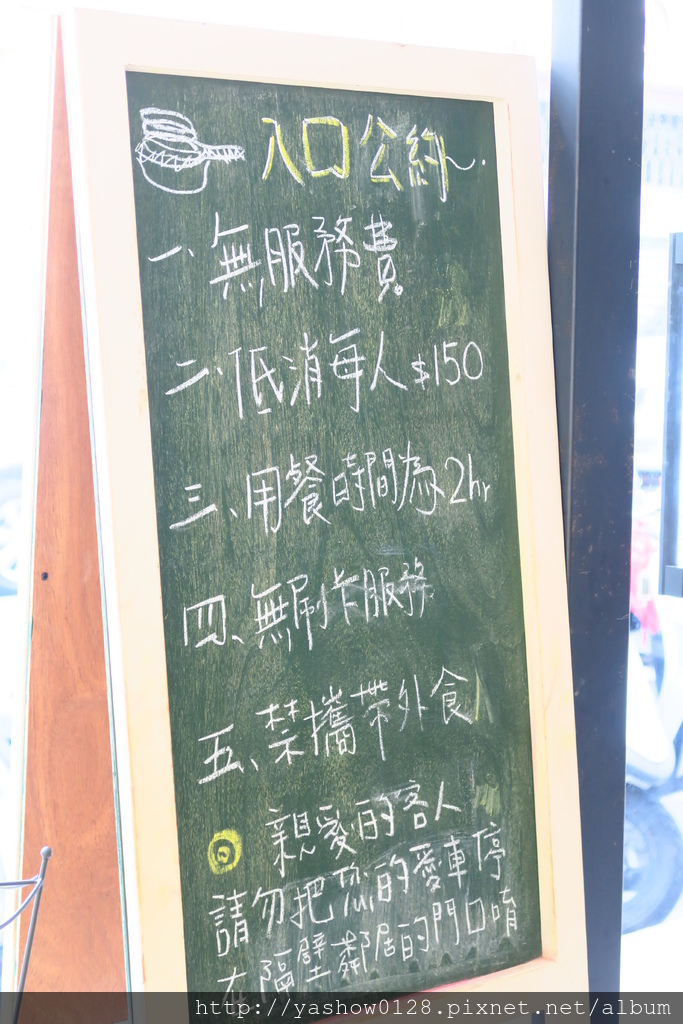 入口公約~.
一、無服務費。
二、低消每人$150
三、用餐時間為2hr
四、無刷卡服務
五、禁攜帶外食
親愛的客人
請勿把您的愛車停
在隔壁鄰居的門口唷
http://yashow0128.pixnet.net/album